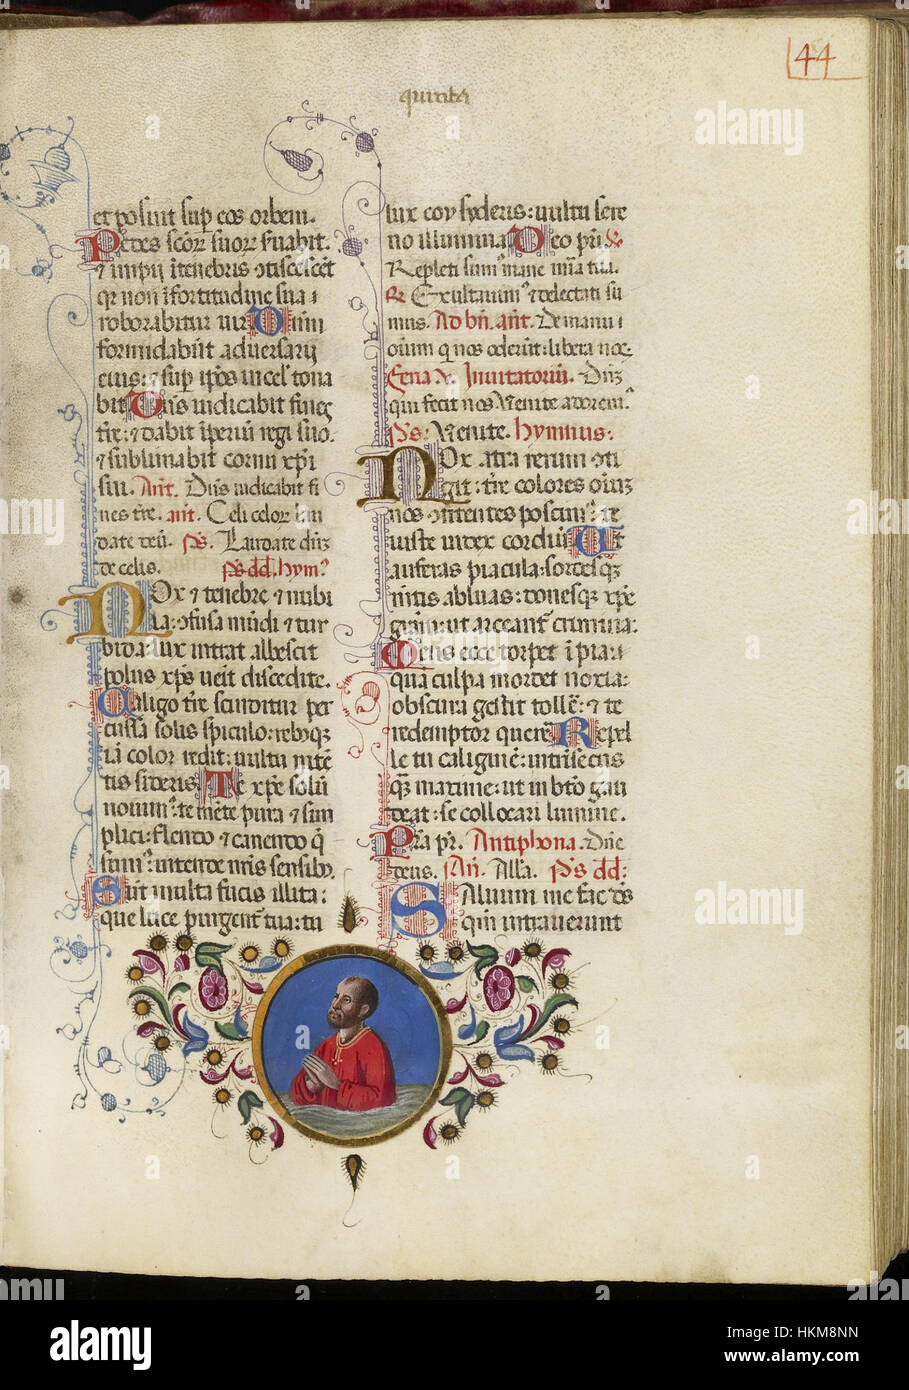 44
et posuit sup eos orbem.
Pedes scōr suor suabit.
⁊ impij i tenebris
qr non i fortitudine sua
roborabitur uir Dnm
formidabūt aduersarij
eius: ⁊ sup ipos in cel tona
bit Dns iudicabit fines
tre: ⁊ dabit iperiū regi suo.
⁊ sublimabit cornu xpi
sui. Ant. Dns iudicabit fi
nes tre. ant. Celi celor lau
date deū. ps. Laudate dnz
de celis. ps. dd. hym
Nox ⁊ tenebre ⁊ nubi
la: ofusa mūdi ⁊ tur
bida: lux intrat albescit
polus xps ueit discedite.
Caligo tre scinditur per
cussa solis spiculo: rebusqz
iā color redit: uultu nitē
tis sideris. Te xpe solū
nouim: te mēte pura ⁊ sim
plici: flendo ⁊ canendo q
sum: intende nris sensibz.
Sūt multa fucis illita:
que luce purgent tua: tu
lux eoy syderis: uultu sere
no illumina Deo pri
Repleti sum mane mia tua.
R Exultauim ⁊ delectati su
mus. Ad bn. ant. De manu
oium q nos oderūt: libera nos
Feria v. Inuitatoriū. Dnz
qui fecit nos Venite adorem.
Ps: Venite. hymnus:
Nox atra rerum oti
git: tre colores oiuz
nos ofitentes poscim: te
iuste iudex cordiū Ut
auferas piacula: sordesqz
mētis abluas: donesqz xpe
grām: ut arceant crimina:
Mens ecce torpet ipia:
quā culpa mordet noxia:
obscura gestit tolle: ⁊ te
redemptor querē Repel
le tu caliginē: intrisecus
qz maxime: ut in bto gau
deat: se collocari lumine.
Pra pr. Antiphona. Dne
deus. An. Alla. Ps dd:
Saluum me fac ds
qm intrauerunt
alamy
HKM8NN
www.alamy.com